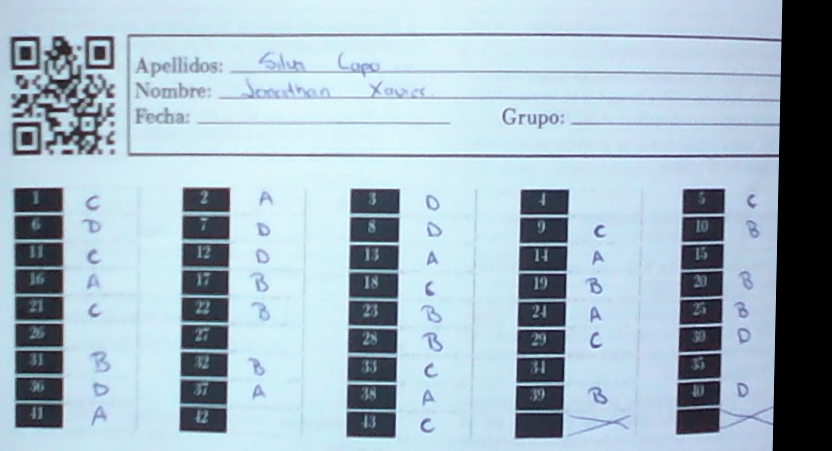 Apellidos: Silva Capo
Nombre: Jonathan Xavier
Fecha: Grupo:
1 C 2 A 3 D 4 5 C
6 D 7 D 8 D 9 C 10 B
11 C 12 D 13 A 14 A 15
16 A 17 B 18 C 19 B 20 B
21 C 22 B 23 B 24 A 25 B
26 27 28 B 29 C 30 D
31 B 32 B 33 C 34 35
36 D 37 A 38 A 39 B 40 D
41 A 42 43 C